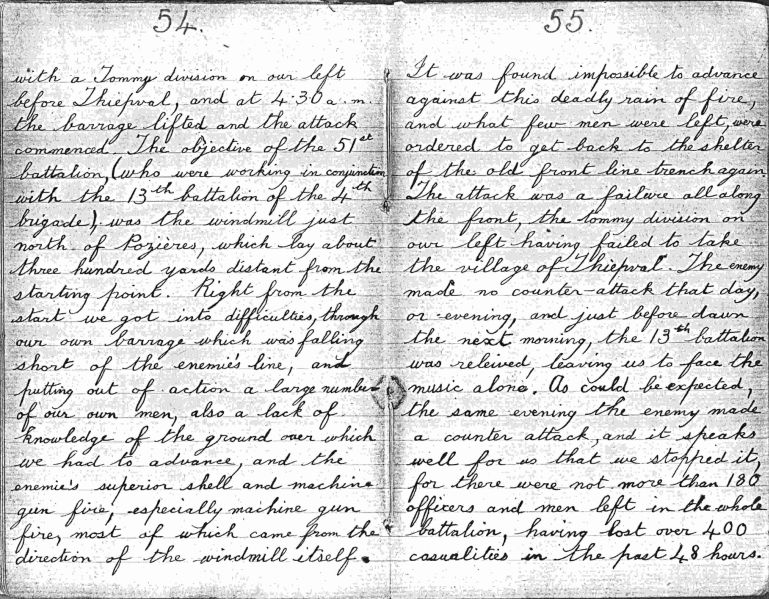 54.
with a Tommy division on our left
before Thiepval, and at 4.30 a.m.
the barrage lifted and the attack
commenced. The objective of the 51st
battalion, (who were working in conjunction
with the 13th battalion of the 4th
brigade), was the windmill just
north of Pozières, which lay about
three hundred yards distant from the
starting point. Right from the
start we got into difficulties, through
our own barrage which was falling
short of the enemie's line, and
putting out of action a large number
of our own men, also a lack of
knowledge of the ground over which
we had to advance, and the
enemie's superior shell and machine
gun fire, especially machine gun
fire, most of which came from the
direction of the windmill itself.
55.
It was found impossible to advance
against this deadly rain of fire,
and what few men were left, were
ordered to get back to the shelter
of the old front line trench again.
The attack was a failure all along
the front, the tommy division on
our left having failed to take
the village of Thiepval. The enemy
made no counter-attack that day,
or evening, and just before dawn
the next morning, the 13th battalion
was releived, leaving us to face the
music alone. As could be expected,
the same evening the enemy made
a counter attack, and it speaks
well for us that we stopped it,
for there were not more than 180
officers and men left in the whole
battalion, having lost over 400
casualities in the past 48 hours.